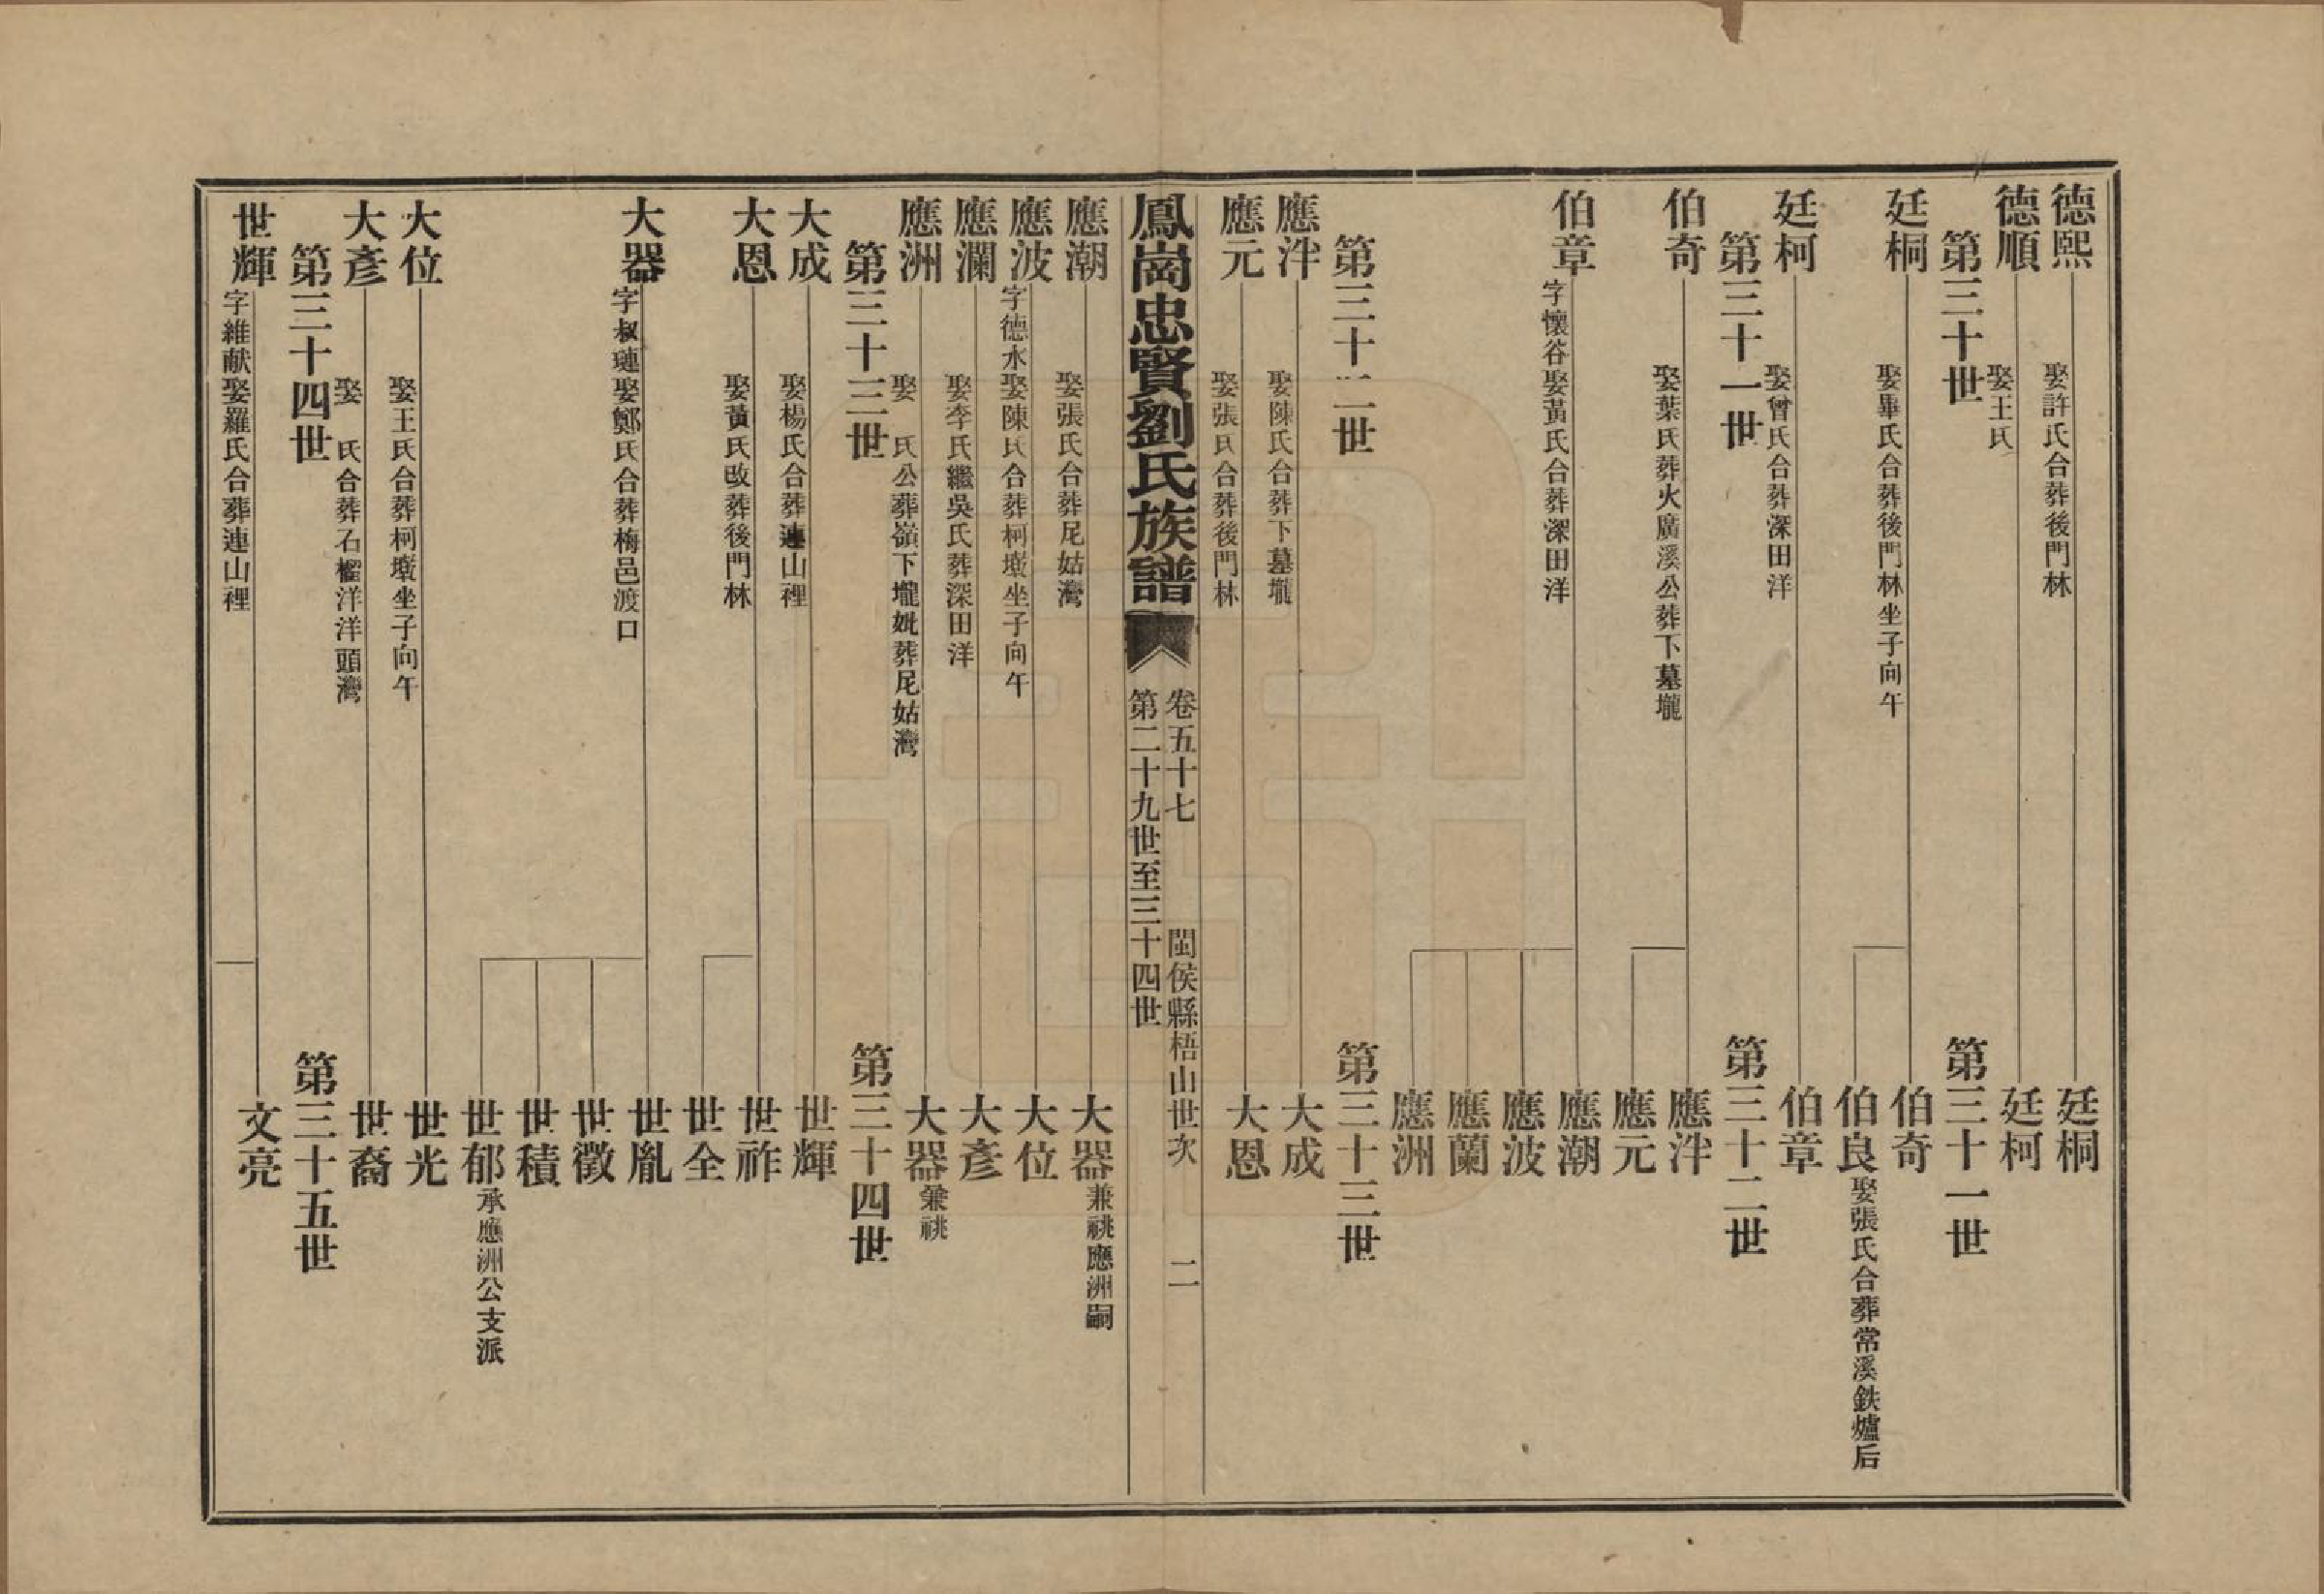 德熙 娶許氏合葬後門林 廷桐
德順 娶王氏 廷柯
第三十世 第三十一世
廷桐 娶畢氏合葬後門林坐子向午 伯奇
伯良 娶張氏合葬常溪鉄爐后
廷柯 娶曾氏合葬深田洋 伯章
第三十一世 第三十二世
伯奇 娶葉氏葬火廣溪公葬下墓壠 應泮
應元
伯章 字懷谷娶黃氏合葬深田洋 應潮
應波
應蘭
應洲
第三十二世 第三十三世
應泮 娶陳氏合葬下墓壠 大成
應元 娶張氏合葬後門林 大恩
鳳崗忠賢劉氏族譜
卷五十七 閩侯縣梧山世次 二
第二十九世至三十四世
應潮 娶張氏合葬尼姑灣 大器 兼祧應洲嗣
應波 字德水娶陳氏合葬柯墩坐子向午 大位
應瀾 娶李氏繼吳氏葬深田洋 大彥
應洲 娶 氏公葬嶺下壠妣葬尼姑灣 大器 兼祧
第三十三世 第三十四世
大成 娶楊氏合葬連山裡 世輝
大恩 娶黃氏改葬後門林 世祚
世全
大器 字叔璉娶鄭氏合葬梅邑渡口 世胤
世徵
世積
世郁 承應洲公支派
大位 娶王氏合葬柯墩坐子向午 世光
大彥 娶 氏合葬石櫂洋洋頭灣 世裔
第三十四世 第三十五世
世輝 字維献娶羅氏合葬連山裡 文亮